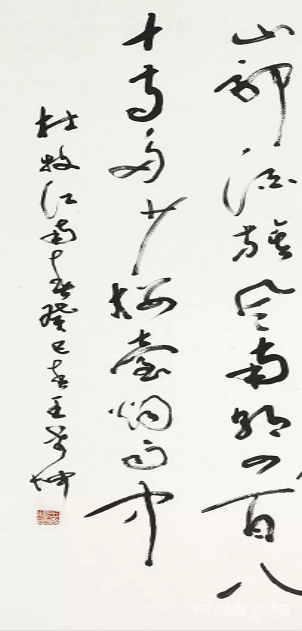 山郭酒旗风南朝四百八
十寺多少楼臺烟雨中
杜牧江南春癸巳春王